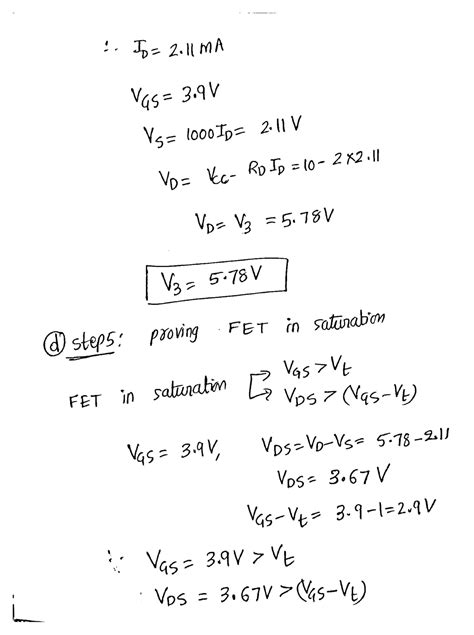 ∴ I_D = 2.11 mA
V_GS = 3.9V
V_S = 1000 I_D = 2.11 V
V_D = V_CC - R_D I_D = 10 - 2×2.11
V_D = V_3 = 5.78V
V_3 = 5.78V
ⓓ step5: proving FET in saturation
FET in saturation → V_GS > V_t
→ V_DS > (V_GS - V_t)
V_GS = 3.9V, V_DS = V_D - V_S = 5.78 - 2.11
V_DS = 3.67 V
V_GS - V_t = 3.9 - 1 = 2.9V
∵ V_GS = 3.9V > V_t
V_DS = 3.67V > (V_GS - V_t)